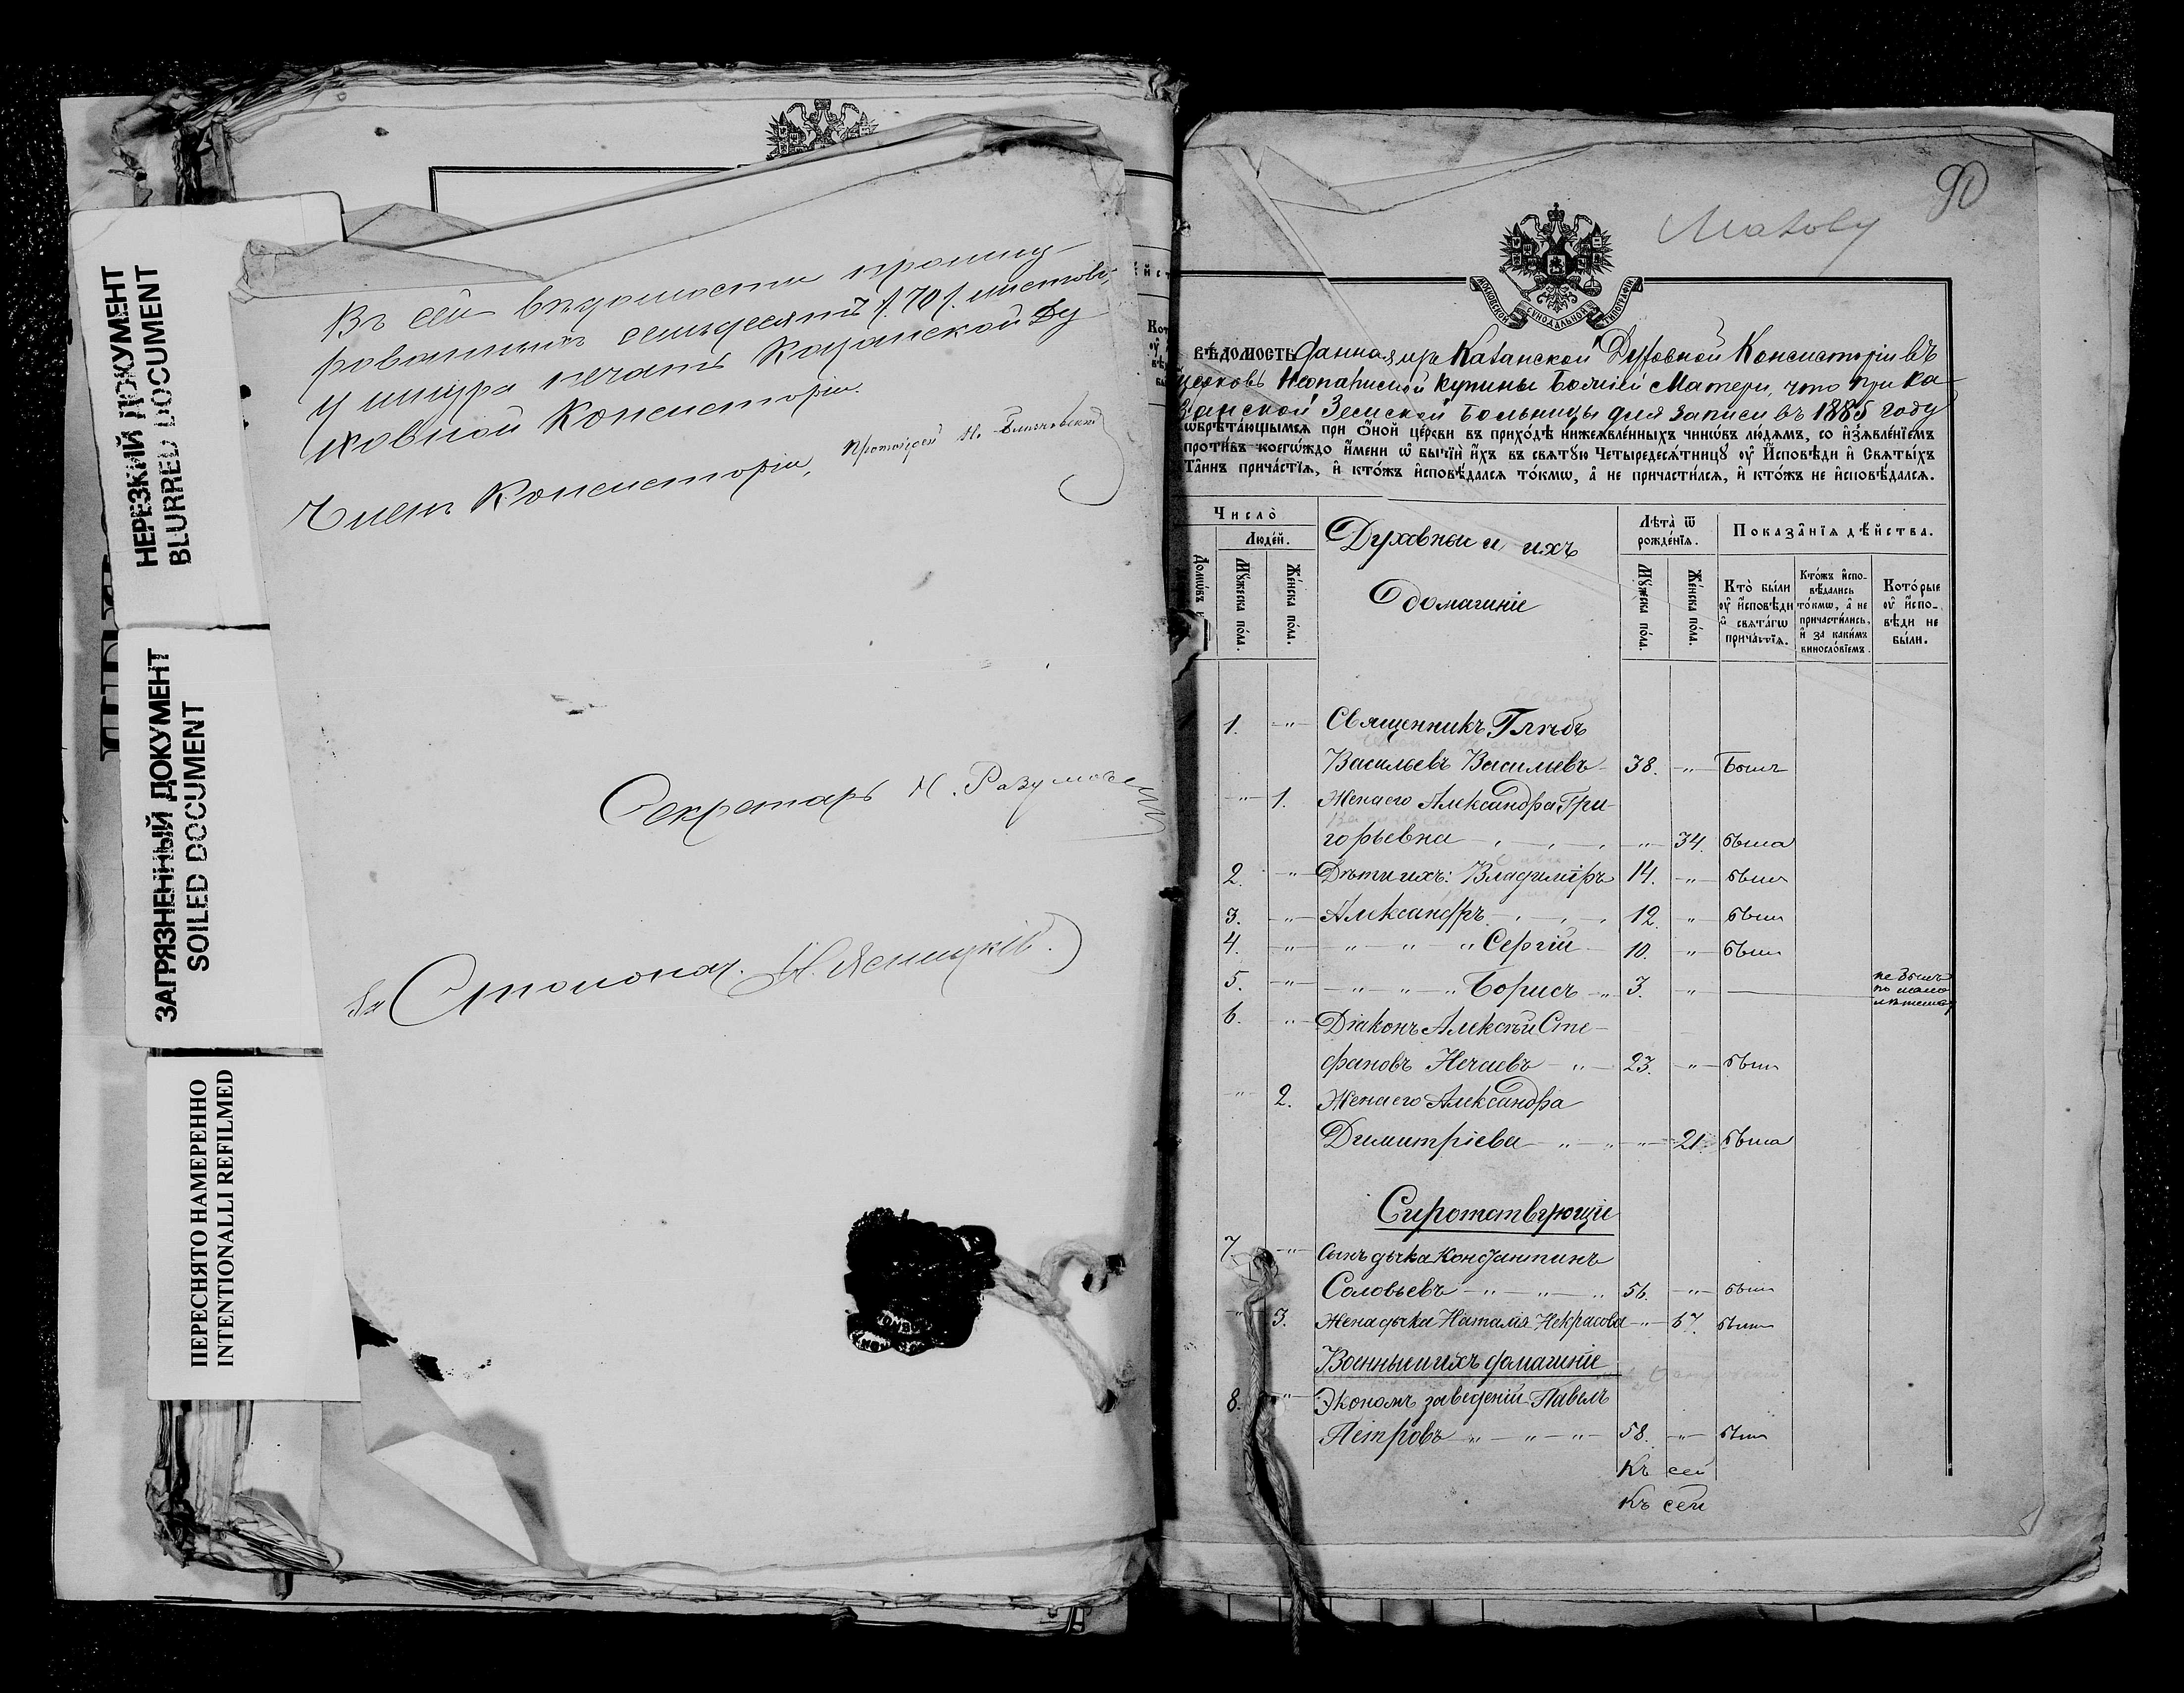 НЕРЕЗКИЙ ДОКУМЕНТ
BLURRED DOCUMENT
ЗАГРЯЗНЕННЫЙ ДОКУМЕНТ
SOILED DOCUMENT
ПЕРЕСНЯТО НАМЕРЕННО
INTENTIONALLI REFILMED
Въ сей вѣдомости прошну-
рованныхъ семьдесятъ /.70/. листовъ,
у шнура печать Казанской Ду
ховной Консисторіи.
Членъ Консисторіи, Протоіерей
Секретарь Н. Разумов
Столонач.
90
МОСКОВСКОЙ СУНОДАЛЬНОЙ ТИПОГРАФІИ
ВѢДОМОСТЬ данная изъ Казанской Духовной Консисторіи въ
церковь Неопалимой Купины Божіей Матери, что при Ка-
занской Земской больницы для записи въ 1885 году
ѡбрѣта́ющымсѧ при ѻ҆́ной це́ркви въ прихо́дѣ ни́жеѧвле́нныхъ чинѡ́въ лю́дѧмъ, со и҆з̾ѧвле́нїемъ
про́тивъ коегѡ́ждо и҆́мени ѡ҆ бытїѝ и҆́хъ въ свѧту́ю Четыредесѧ́тницꙋ ᲂу҆ И҆́сповѣди и҆ Свѧты́хъ
Та̑инъ прича́стїѧ, и҆ кто́жъ и҆сповѣ́далсѧ то́кмѡ, а҆ не причасти́лсѧ, и҆ кто́жъ не и҆сповѣ́далсѧ.
Число̀
Люде́й.
Домѡ́въ
Мꙋ́жеска по́ла.
Же́нска по́ла.
Духовные и ихъ
домашніе
Лѣта̀ ѿ
рожде́нїѧ.
Мꙋ́жеска по́ла.
Же́нска по́ла.
Показа̑нїѧ дѣ́йства.
Кто̀ бы́ли
ᲂу҆ и҆́сповѣди
и҆ свѧта́гѡ
прича́стїѧ.
Кто́жъ и҆спо-
вѣ́дались
то́кмѡ, а҆ не
причасти́лись,
и҆ за каки́мъ
виносло́вїемъ.
Кото́рые
ᲂу҆ и҆́спо-
вѣди не
бы́ли.
1. -"- Священникъ Глѣбъ
Васильевъ Васильевъ 38. -"- Былъ
-"- 1. Жена его Александра Гри-
горьевна -"- 34. была
2. -"- Дѣти ихъ: Владиміръ 14. -"- былъ
3. -"- Александръ 12. " былъ
4. -"- -"-"-" Сергій 10. " былъ
5. -"- -"-"-" Борисъ 3. " не былъ
по мало
лѣтству
6. -"- Діаконъ Алексѣй Сте-
фановъ Нечаевъ -"- 23. -"- былъ
-"- 2. Жена его Александра
Димитріева -"-"-"- 21. была
Сиротствующіе
7. -"- Сынъ дьчка Константинъ
Соловьевъ -"-"-" 56. -"- былъ
-"- 3. Жена дьчка Наталія Некрасова -"- 67.
Военные и ихъ домашніе
8. -"- Экономъ заведеній Павелъ
Петровъ -"-"-"- 58. -"- былъ
Къ сей
Къ сей